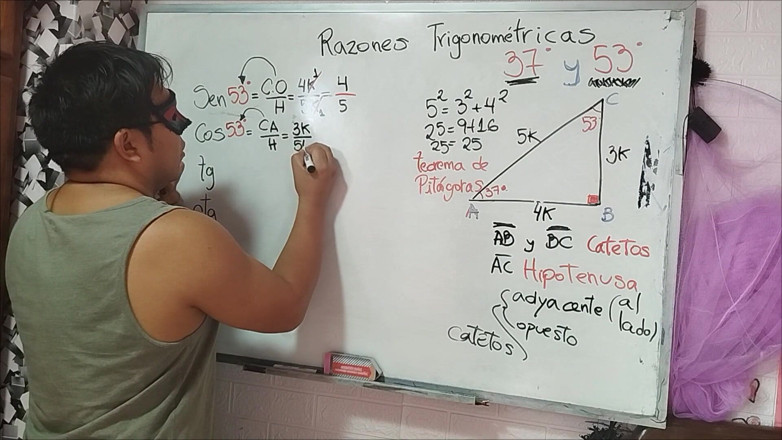 Razones Trigonométricas
37° y 53°
Sen 53° = C.O/H = 4K/5K = 4/5
Cos 53° = CA/H = 3K/5
tg
ctg
5² = 3² + 4²
25 = 9+16
25 = 25
teorema de
Pitágoras
C
53
5K
3K
37°
A
4K
B
AB y BC Catetos
AC Hipotenusa
Catetos
adyacente (al lado)
opuesto